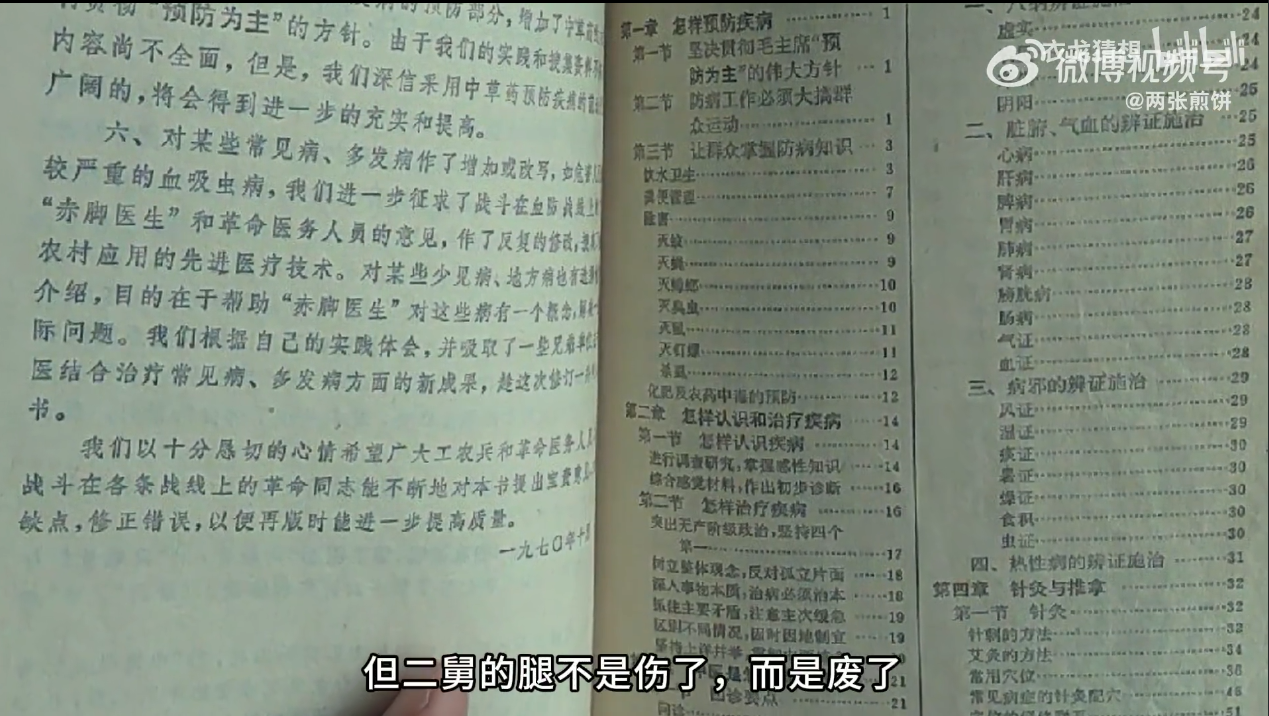 “预防为主”的方针。由于我们的实践和搜集资料
内容尚不全面，但是，我们深信采用中草药预防疾病的
广阔的，将会得到进一步的充实和提高。
六、对某些常见病、多发病作了增加或改写，如危害
较严重的血吸虫病，我们进一步征求了战斗在血防战线上
“赤脚医生”和革命医务人员的意见，作了反复的修改，
农村应用的先进医疗技术。对某些少见病、地方病也有
介绍，目的在于帮助“赤脚医生”对这些病有一个概念，
际问题。我们根据自己的实践体会，并吸取了一些兄弟单位
医结合治疗常见病、多发病方面的新成果，
书。
我们以十分恳切的心情希望广大工农兵和革命医务人员
战斗在各条战线上的革命同志能不断地对本书提出宝贵
缺点，修正错误，以便再版时能进一步提高质量。
一九七〇年十
第一章 怎样预防疾病 1
第一节 坚决贯彻毛主席“预
防为主”的伟大方针 1
第二节 防病工作必须大搞群
众运动 1
第三节 让群众掌握防病知识 3
饮水卫生 3
粪便管理 7
除害 9
灭蚊 9
灭蝇 9
灭蟑螂 10
灭臭虫 10
灭鼠 11
灭钉螺 11
杀蛆 12
化肥及农药中毒的预防 12
第二章 怎样认识和治疗疾病 14
第一节 怎样认识疾病 14
进行调查研究，掌握感性知识 14
综合感觉材料，作出初步诊断 16
第二节 怎样治疗疾病 16
突出无产阶级政治，坚持四个
第一 17
树立整体观念，反对孤立片面 18
深入事物本质，治病必须治本 18
抓住主要矛盾，注意主次缓急 19
区别不同情况，因时因地制宜 19
21
24
虚实 24
24
阴阳 25
二、脏腑、气血的辨证施治 25
心病 25
肝病 26
脾病 26
胃病 26
肺病 27
肾病 27
膀胱病 28
肠病 28
气证 28
血证 28
三、病邪的辨证施治 29
风证 29
湿证 29
痰证 30
暑证 30
燥证 30
食积 30
虫证 30
四、热性病的辨证施治 31
第四章 针灸与推拿 32
第一节 针灸 32
针刺的方法 32
艾灸的方法 34
常用穴位 36
常见病症的针灸配穴 46
51
衣戈猜想 bilibili
微博视频号
@两张煎饼
但二舅的腿不是伤了，而是废了